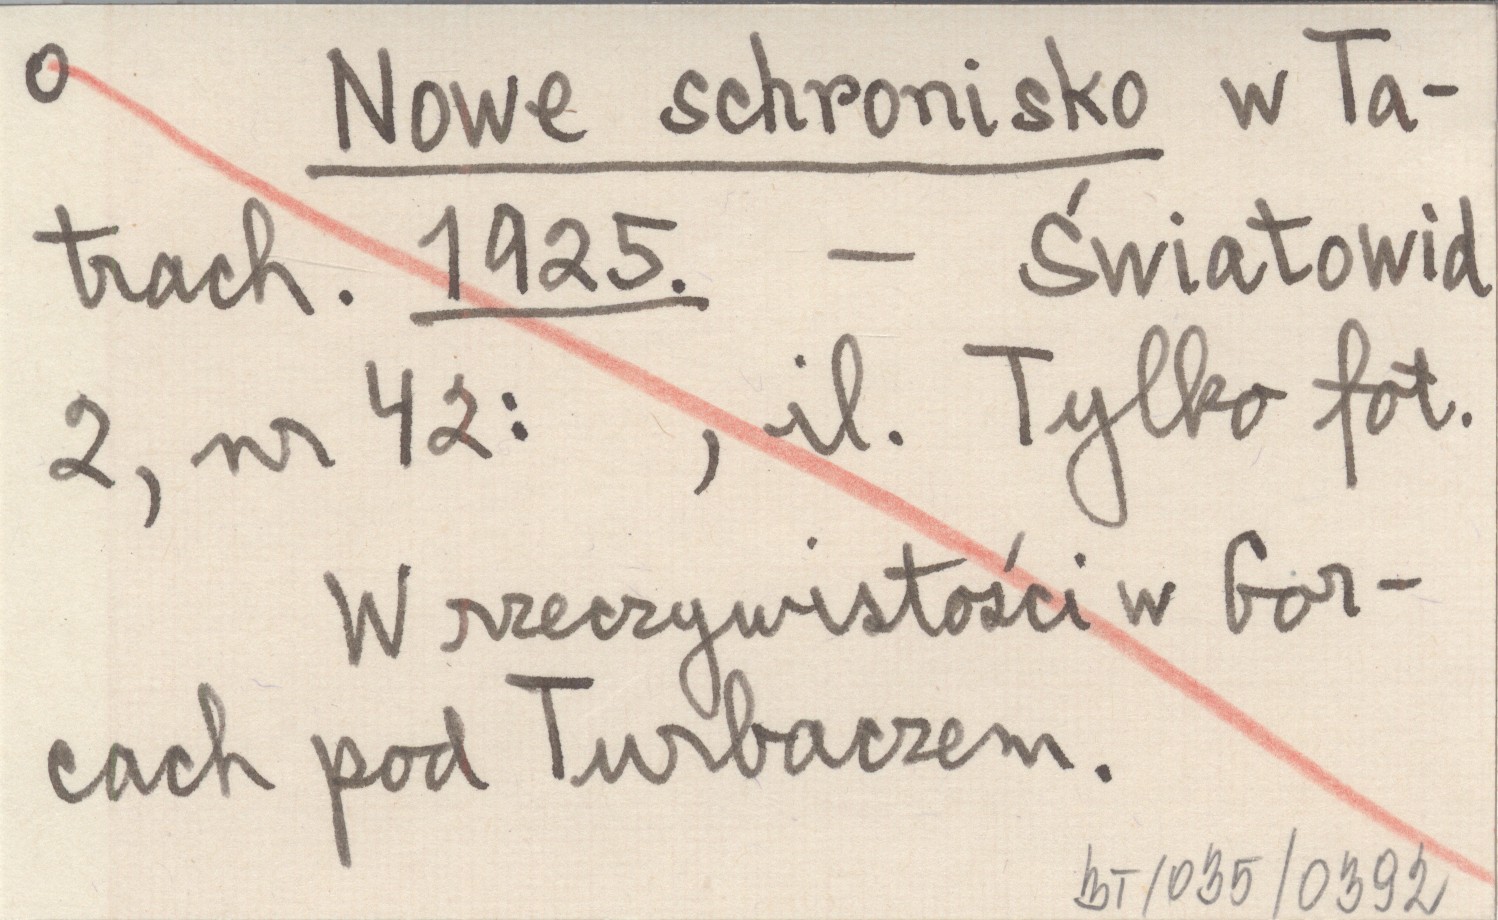 O Nowe schronisko w Ta-
trach. 1925. — Światowid
2, nr 42: , il. Tylko fot.
W rzeczywistości w Gor-
cach pod Turbaczem.
BT/035/0392